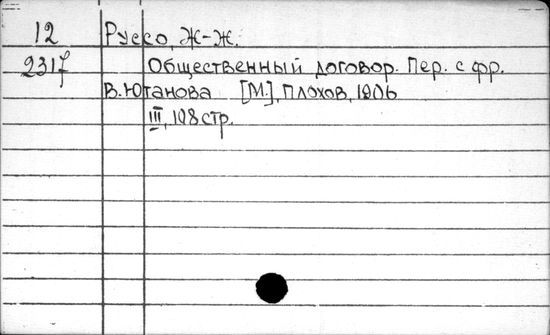 12 Руссо, Ж-Ж.
2317 Общественный договор. Пер. с фр.
В. Ютанова [М.], Плохов, 1906
III, 108 стр.